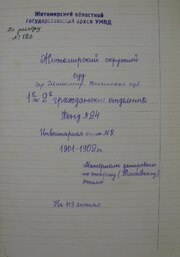 Житомирский областной
государственный архив УМВД
По реестру
№ 120
Житомирский окружной
суд
гор. Житомир, Волынской губ.
1е и 2е гражданские отделения
Фонд № 24
Инвентарная опись № 8
1901-1902 гг.
Материалы датированы
по старому (
) стилю
На 113 листах